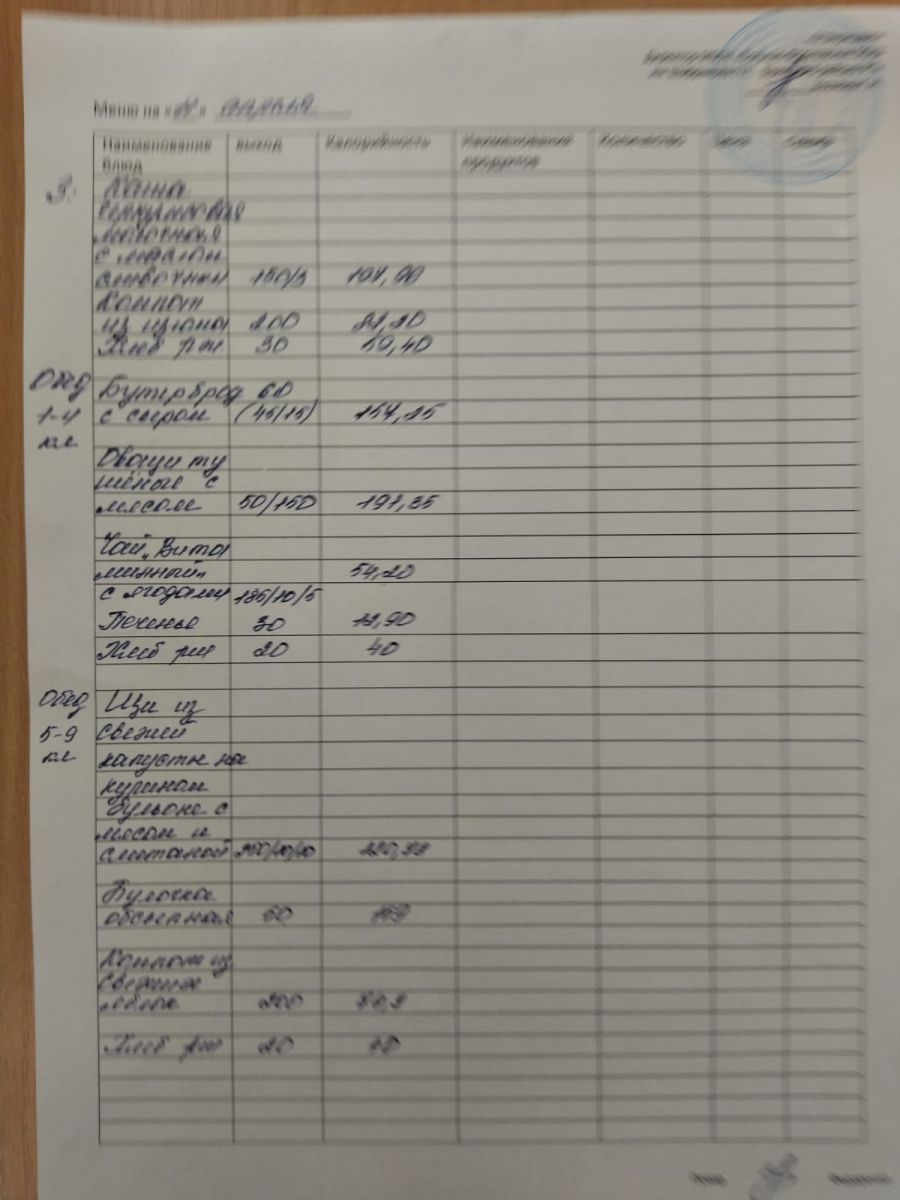 Меню на «11» апреля
Наименование блюд выход Калорийность Наименование продуктов Количество Цена Сумма
З.
Каша
геркулесовая
молочная
с маслом
сливочным 150/5
Компот
из изюма 200
Хлеб рж 30 59,40
Обед Бутерброд 60
1-4 с сыром (45/15) 157,25
кл
Овощи ту
шёные с
мясом 50/150 197,35
Чай „Вита
минный" 54,20
с ягодами 185/10/5
Печенье 30 12,90
Хлеб рж 20 40
Обед Щи из
5-9 свежей
кл капусты на
курином
бульоне с
мясом и
сметаной 250/10/10
Булочка
обсыпная 60
Компот из
свежих
яблок 200
Хлеб рж 20 40